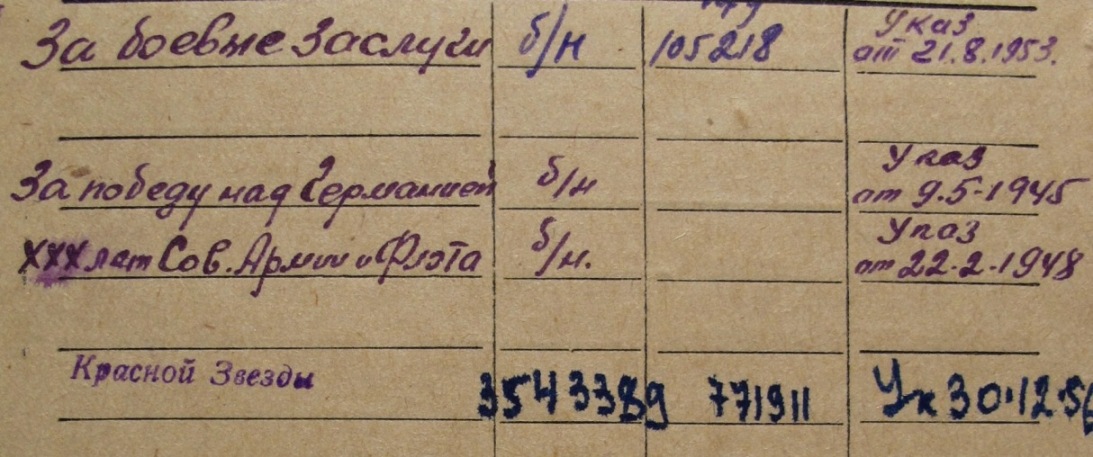 За боевые заслуги б/н 105218 Указ
от 21.8.1953.
За победу над Германией б/н Указ
от 9.5.1945
XXX лет Сов. Армии и Флота б/н. Указ
от 22.2.1948
Красной Звезды 3543389 771911 Ук 30.12.56